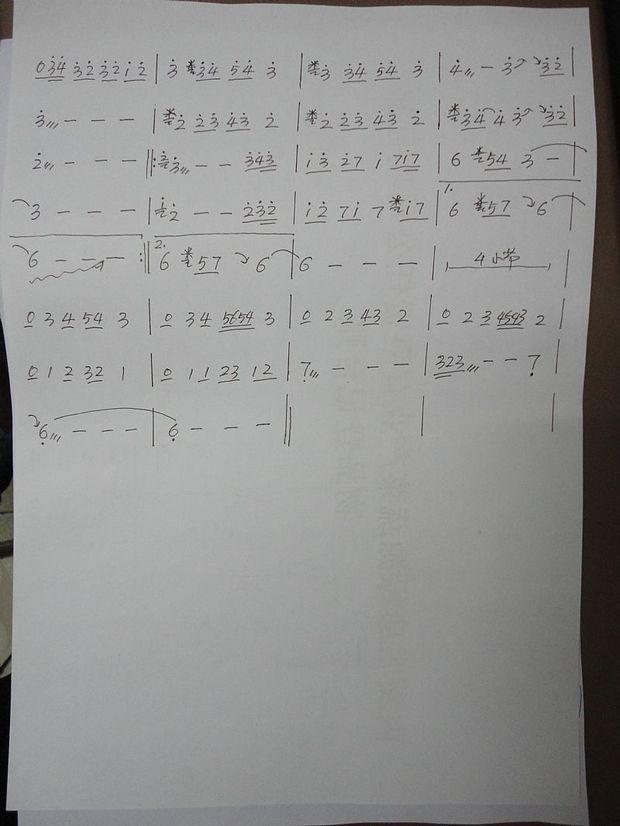 0 3̇4̇ 3̇2̇ 3̇2̇ 1̇2̇ | 3̇ 3̇4̇ 5̇4̇ 3̇ | 3̇ 3̇4̇ 5̇4̇ 3̇ | 4̇ - 3̇ 3̇2̇ |
3̇ - - - | 2̇ 2̇3̇ 4̇3̇ 2̇ | 2̇ 2̇3̇ 4̇3̇ 2̇ | 3̇4̇ 4̇ 3̇ 3̇2̇ |
2̇ - - - ‖: 3̇ - - 3̇4̇3̇ | 1̇3̇ 2̇7 1̇ 71̇7 | 6 54 3 - |
3 - - - | 2̇ - - 2̇3̇2̇ | 1̇2̇ 71̇ 7 1̇7 | 1. 6 57 6 |
6 - - - :‖ 2. 6 57 6 | 6 - - - | 4小节 |
0 3 4 54 3 | 0 3 4 5654 3 | 0 2 3 43 2 | 0 2 3 4543 2 |
0 1 2 32 1 | 0 1 1 23 12 | 7̣ - - - | 323 - - 7̣ |
6̣ - - - | 6̣ - - - ‖ | |